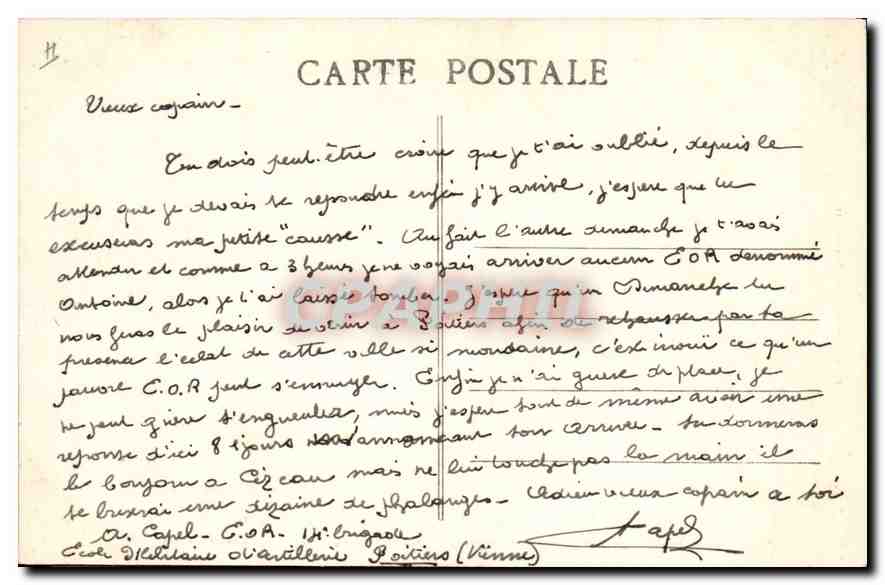 H
CARTE POSTALE
Vieux copain -
Tu dois peut-être croire que je t'ai oublié, depuis le
temps que je devais te repondre enfin j'y arrive, j'espere que tu
excuseras ma petite "causse". Au fait l'autre dimanche je t'avais
attendu et comme a 3 heures je ne voyais arriver aucun E.O.R denommé
Antoine, alors je t'ai laissé tomber. J'espere qu'un Dimanche tu
nous feras le plaisir de venir a Poitiers afin de rehausser par ta
presence l'eclat de cette ville si mondaine, c'est inouï ce qu'un
pauvre E.O.R peut s'ennuyer. Enfin je n'ai guere de place, je
ne peut guère t'engueuler, mais j'espere tout de même avoir une
reponse d'ici 8 jours annoncant ton arrivée - tu donneras
le bonjour a Cizeau mais ne lui touche pas la main il
te briserai une dizaine de phalanges - Adieu vieux copain a toi
A. Capel - E.O.R - 14e brigade
Capel
Ecole Militaire d'artillerie Poitiers (Vienne)
CPAPHIL